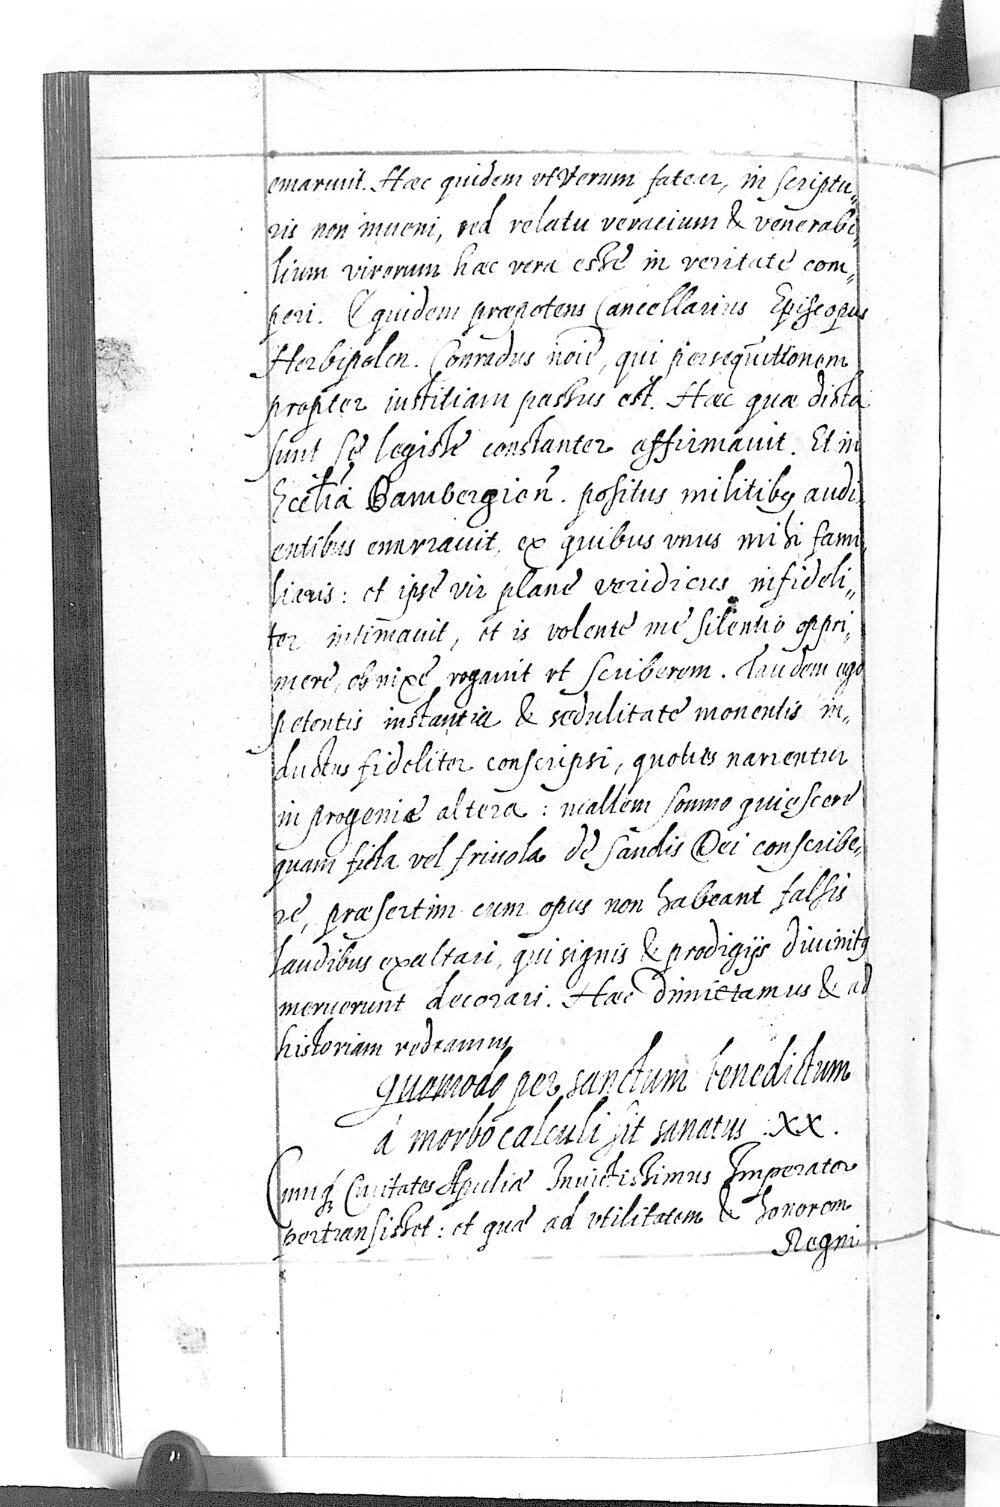 emarunt. Hæc quidem vt verum fatear, in scriptu„
ris non inueni, sed relatu veracium & venerabi„
lium virorum hæc vera esse in veritate com„
peri. Equidem præpotens Cancellarius Episcopus
Herbipolen. Conradus noiē, qui persequutionem
propter iustitiam passus est. Hæc quæ dicta
sunt se legisse constanter affirmauit. Et in
Bambergien̄. positus militibꝫ audi„
entibus enarrauit, ex quibus vnus mihi fami„
liaris: et ipse vir plane veridicus infideli„
ter intimauit, et is volente me silentio oppri„
mere, obnixe rogauit vt scriberem. Tandem ego
petentis instantia & sedulitate monentis in„
ductus fideliter conscripsi, quoties narrentur
in progenie altera: mallem somno quiescere
quam ficta vel friuola de sanctis Dei conscribe„
re, præsertim cum opus non habeant falsis
laudibus exaltari, qui signis & prodigijs diuinitꝫ
meruerunt decorari. Hæc dimictamus & ad
historiam redeamus
Quomodo per sanctum benedictum
à morbo calculi sit sanatus .XX.
Cumqꝫ Ciuitates Apuliæ Inuictissimus Imperator
pertransisset: et quæ ad vtilitatem & honorem
Regni